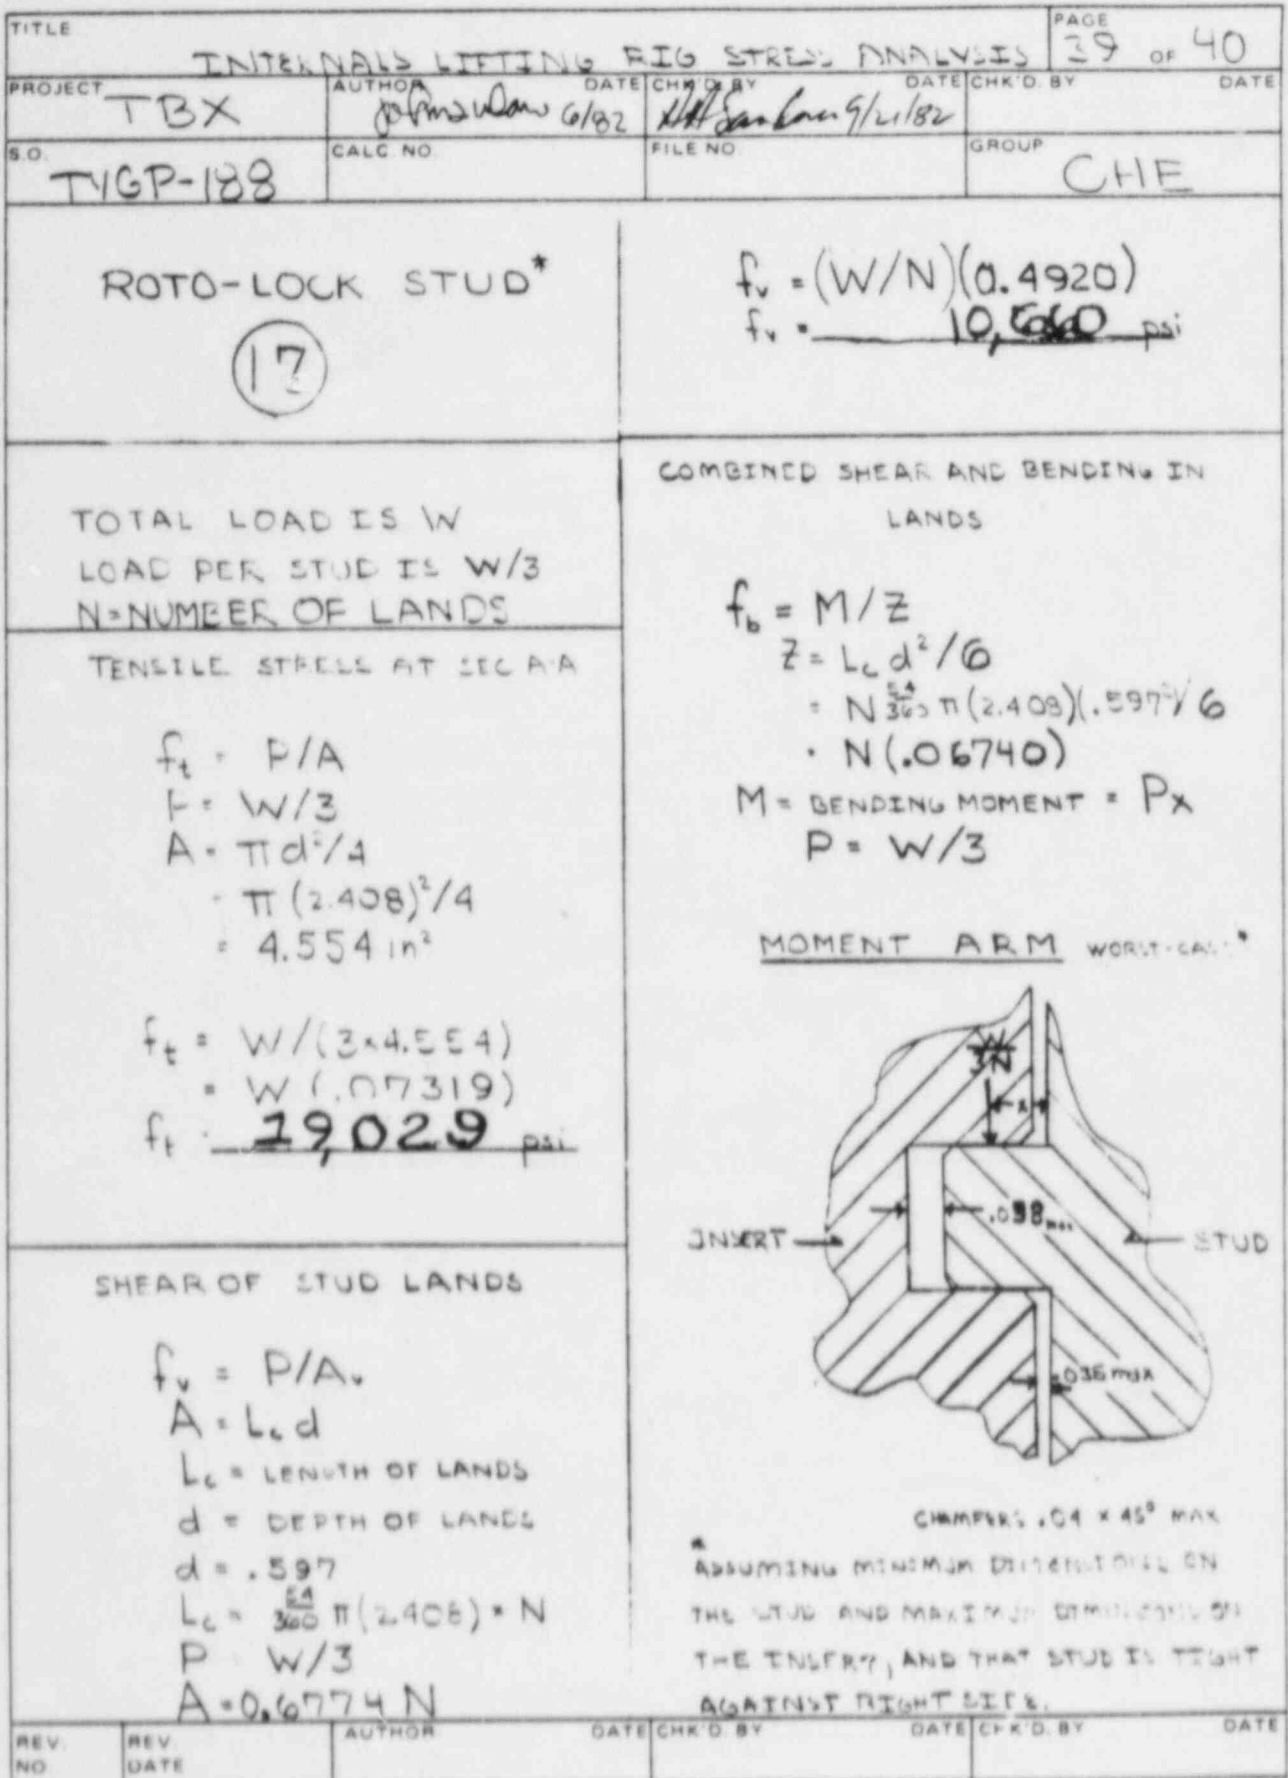 TITLE
INTERNALS LIFTING RIG STRESS ANALYSIS
PAGE
39 OF 40
PROJECT
TBX
AUTHOR DATE
6/82
CHK'D. BY DATE
9/21/82
CHK'D. BY DATE
S.O.
CALC. NO.
FILE NO.
GROUP
CHE
ROTO-LOCK STUD*
17
TOTAL LOAD IS W
LOAD PER STUD IS W/3
N=NUMBER OF LANDS
TENSILE STRESS AT SEC A-A
f_t = P/A
P = W/3
A = πd²/4
= π(2.408)²/4
= 4.554 in²
f_t = W/(3×4.554)
= W(.07319)
f_t = 19,029 psi
SHEAR OF STUD LANDS
f_v = P/A_v
A = L_c d
L_c = LENGTH OF LANDS
d = DEPTH OF LANDS
d = .597
L_c = 54/360 π(2.408) * N
P W/3
A = 0.6774 N
f_v = (W/N)(0.4920)
f_v = psi
COMBINED SHEAR AND BENDING IN
LANDS
f_b = M/Z
Z = L_c d²/6
= N 54/360 π(2.408)(.597²)/6
= N(.06740)
M = BENDING MOMENT = Px
P = W/3
MOMENT ARM WORST-CASE*
W/3N
x
INSERT
STUD
.036 max
CHAMFERS .04 × 45° MAX
*
ASSUMING MINIMUM DIMENSIONS ON
THE STUD AND MAXIMUM DIMENSIONS ON
THE INSERT, AND THAT STUD IS TIGHT
AGAINST RIGHT SIDE.
REV. NO.
REV. DATE
AUTHOR DATE
CHK'D. BY DATE
CHK'D. BY DATE